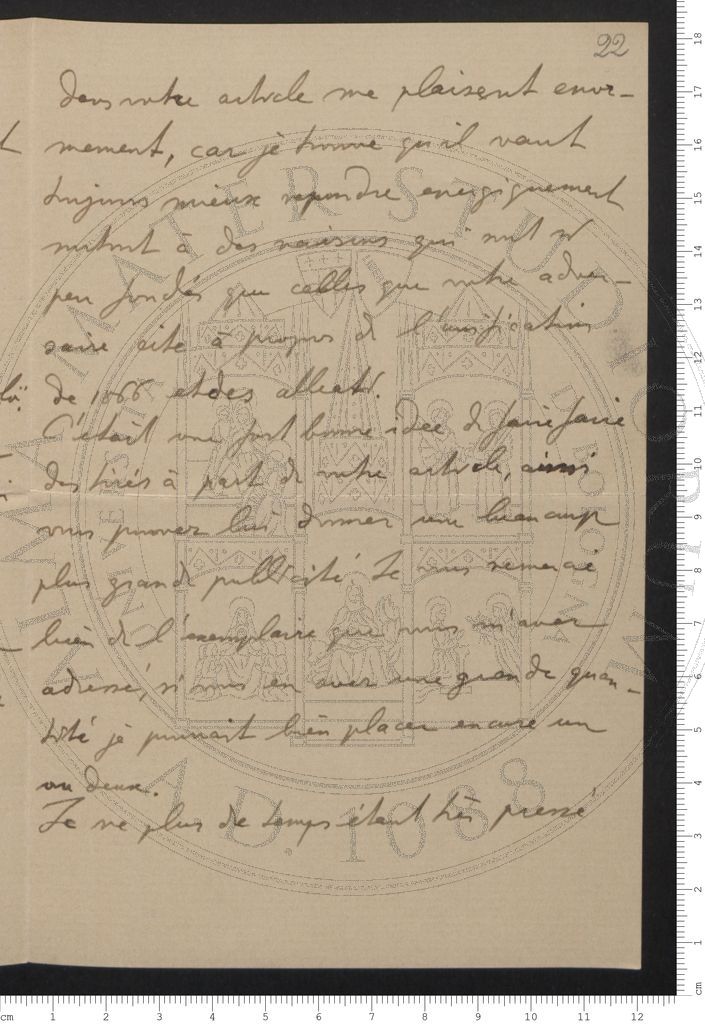 22
dans votre article me plaisent enor-
mement, car je trouve qu'il vaut
toujours mieux repondre energiquement
surtout à des raisons qui sont si
peu fondés que celles que votre adver-
saire cite à propos de l'unification
de 1866 et des
C'était une fort bonne idee de faire faire
des tirés à part de votre article, ainsi
vous pouvez lui donner une beaucoup
plus grande publicité. Je vous remercie
bien de l'exemplaire que vous m'avez
adressé, si vous en avez une grande quan-
tité je pourrait bien placer encore un
ou deux.
Je ne plus de temps étant très pressé
ALMA MATER STUDIORUM
A.D. 1088